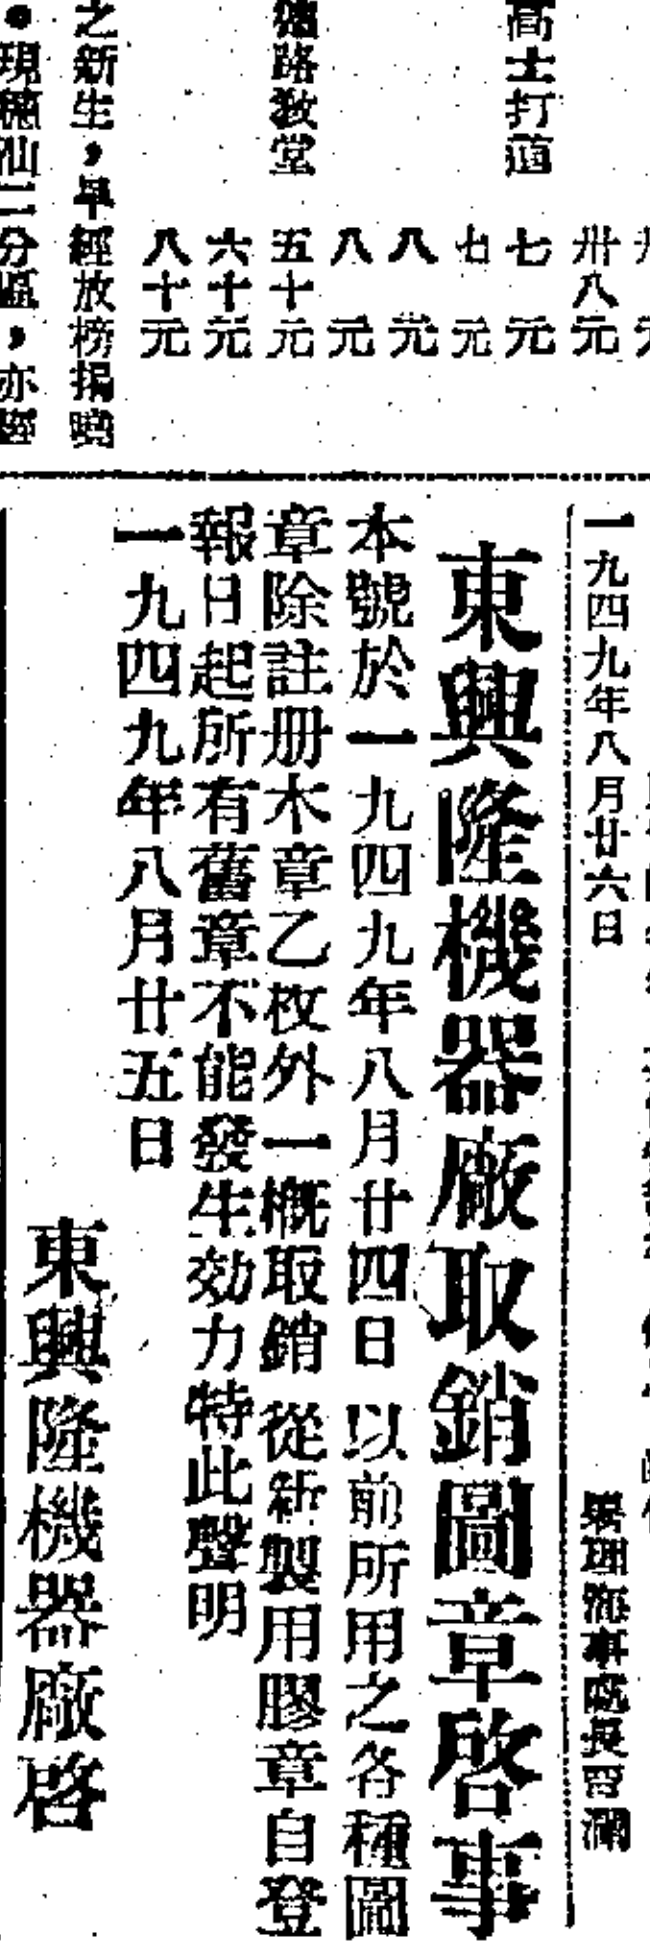 高士打道
卅八元
七元
七元
八元
八元
五十元
六十元
八十元
路教堂
之新生，早經放榜揭曉
仙二分區，亦經
一九四九年八月廿六日
東興隆機器廠取銷圖章啓事
本號於一九四九年八月廿四日以前所用之各種圖
章除註册木章乙枚外一概取銷從新製用膠章自登
報日起所有舊章不能發生効力特此聲明
一九四九年八月廿五日
東興隆機器廠啓